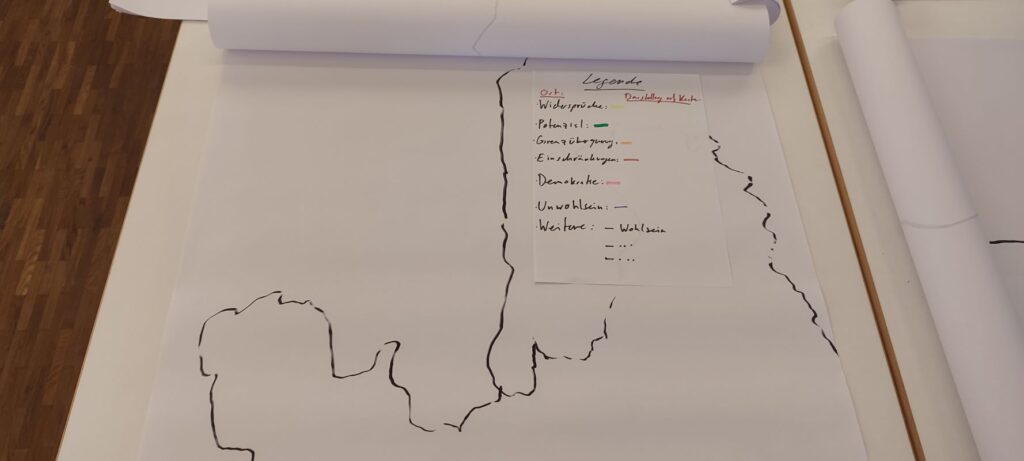 Legende
Ort: Darstellung auf Karte
· Widersprüche:
· Potenzial:
· Grenzübergang:
· Einschränkungen:
· Demokratie:
· Unwohlsein:
· Weitere: — Wohlsein
— ...
— ...